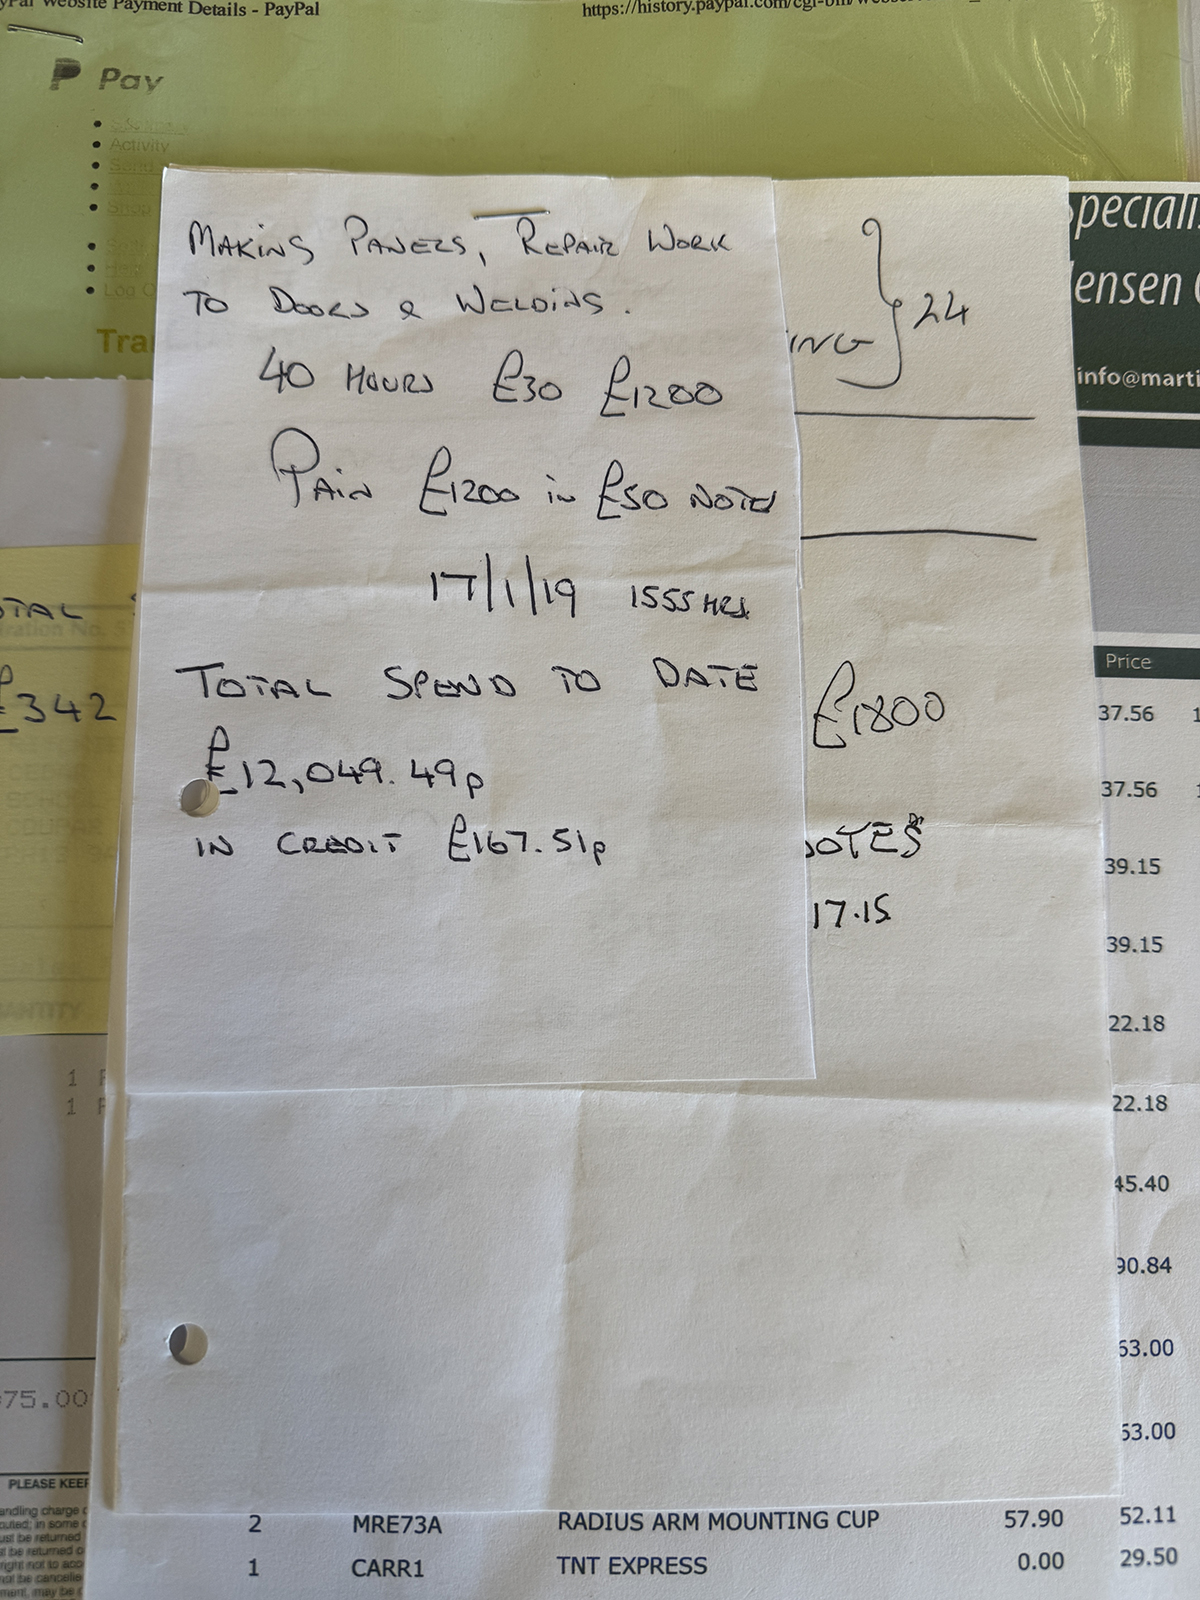 Website Payment Details - PayPal
https://history.paypal.com/cgi-bin/
Pay
Activity
Send
Shop
Help
Log O
Tra
MAKING PANELS, REPAIR WORK
TO DOORS & WELDING.
40 HOURS £30 £1200
PAID £1200 in £50 NOTES
17/1/19 1555 HRS
TOTAL SPEND TO DATE
£12,049.49p
IN CREDIT £167.51p
ING } 24
£1800
NOTES
17.15
peciali
ensen
info@marti
OTAL
£342
ANTITY
1
1
75.00
PLEASE KEEP
andling charge
Price
37.56
37.56
39.15
39.15
22.18
22.18
45.40
90.84
63.00
63.00
2 MRE73A RADIUS ARM MOUNTING CUP 57.90 52.11
1 CARR1 TNT EXPRESS 0.00 29.50